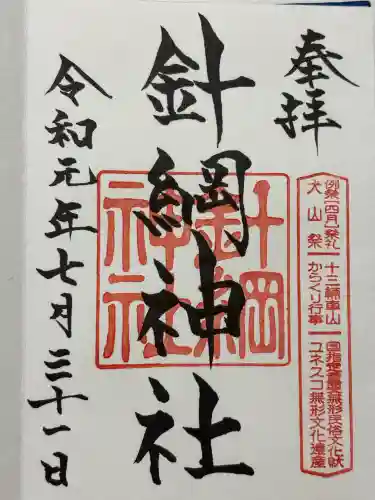 奉拝
例祭【四月】祭礼
犬山祭
十三輌車山
からくり行事
国指定重要無形民俗文化財
ユネスコ無形文化遺産
針綱神社
針綱
神社
令和元年七月三十一日